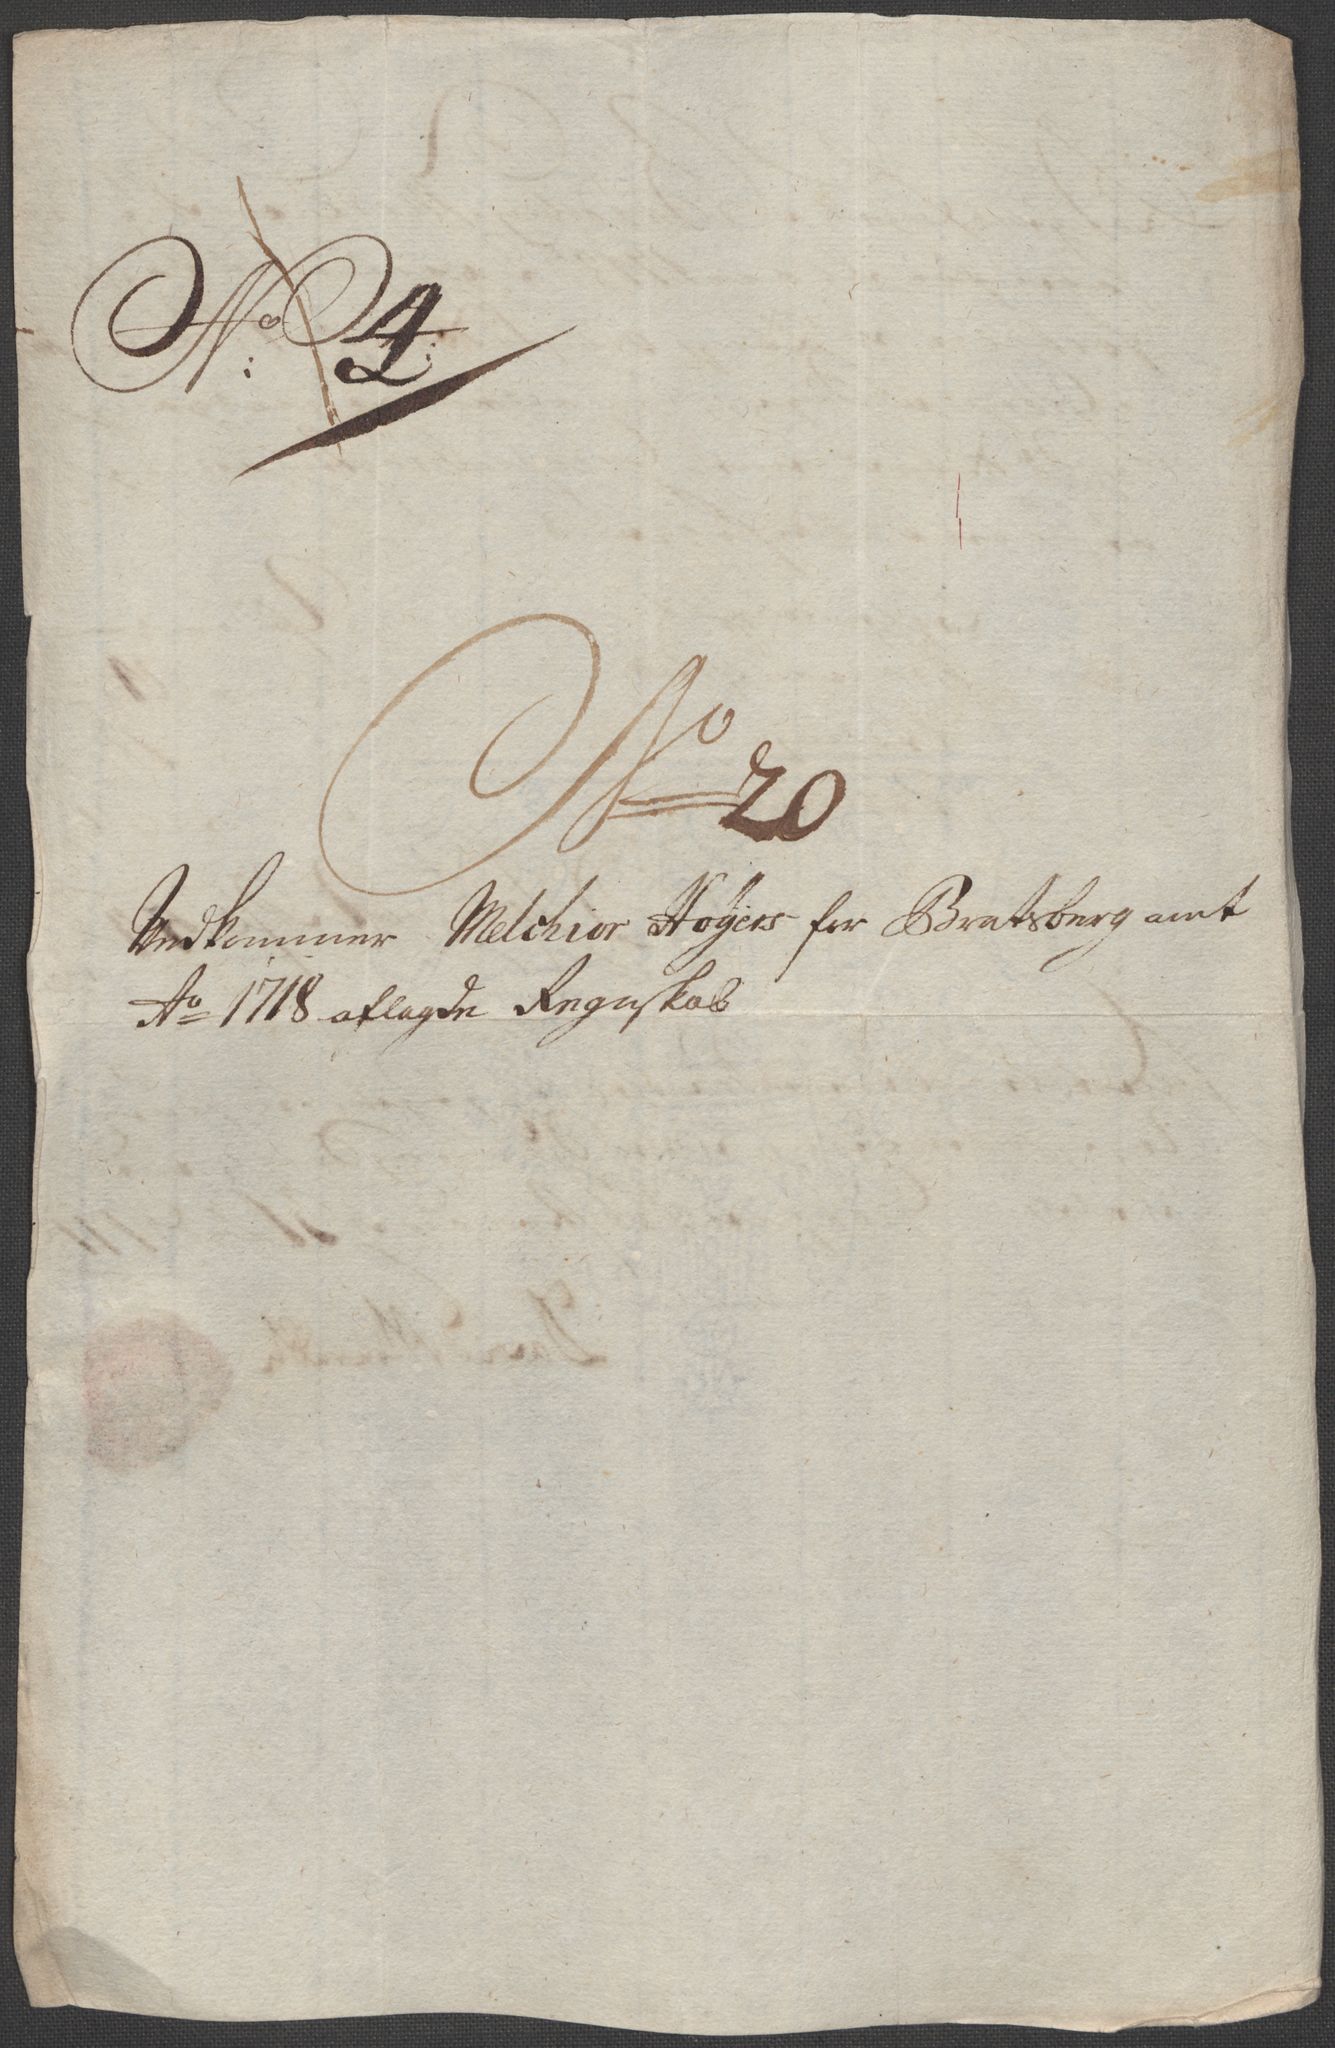 No 4:
No 20
Vedkommer Melchior Høyers for Bratsberg amt
Ao 1718 aflagde Regnskab